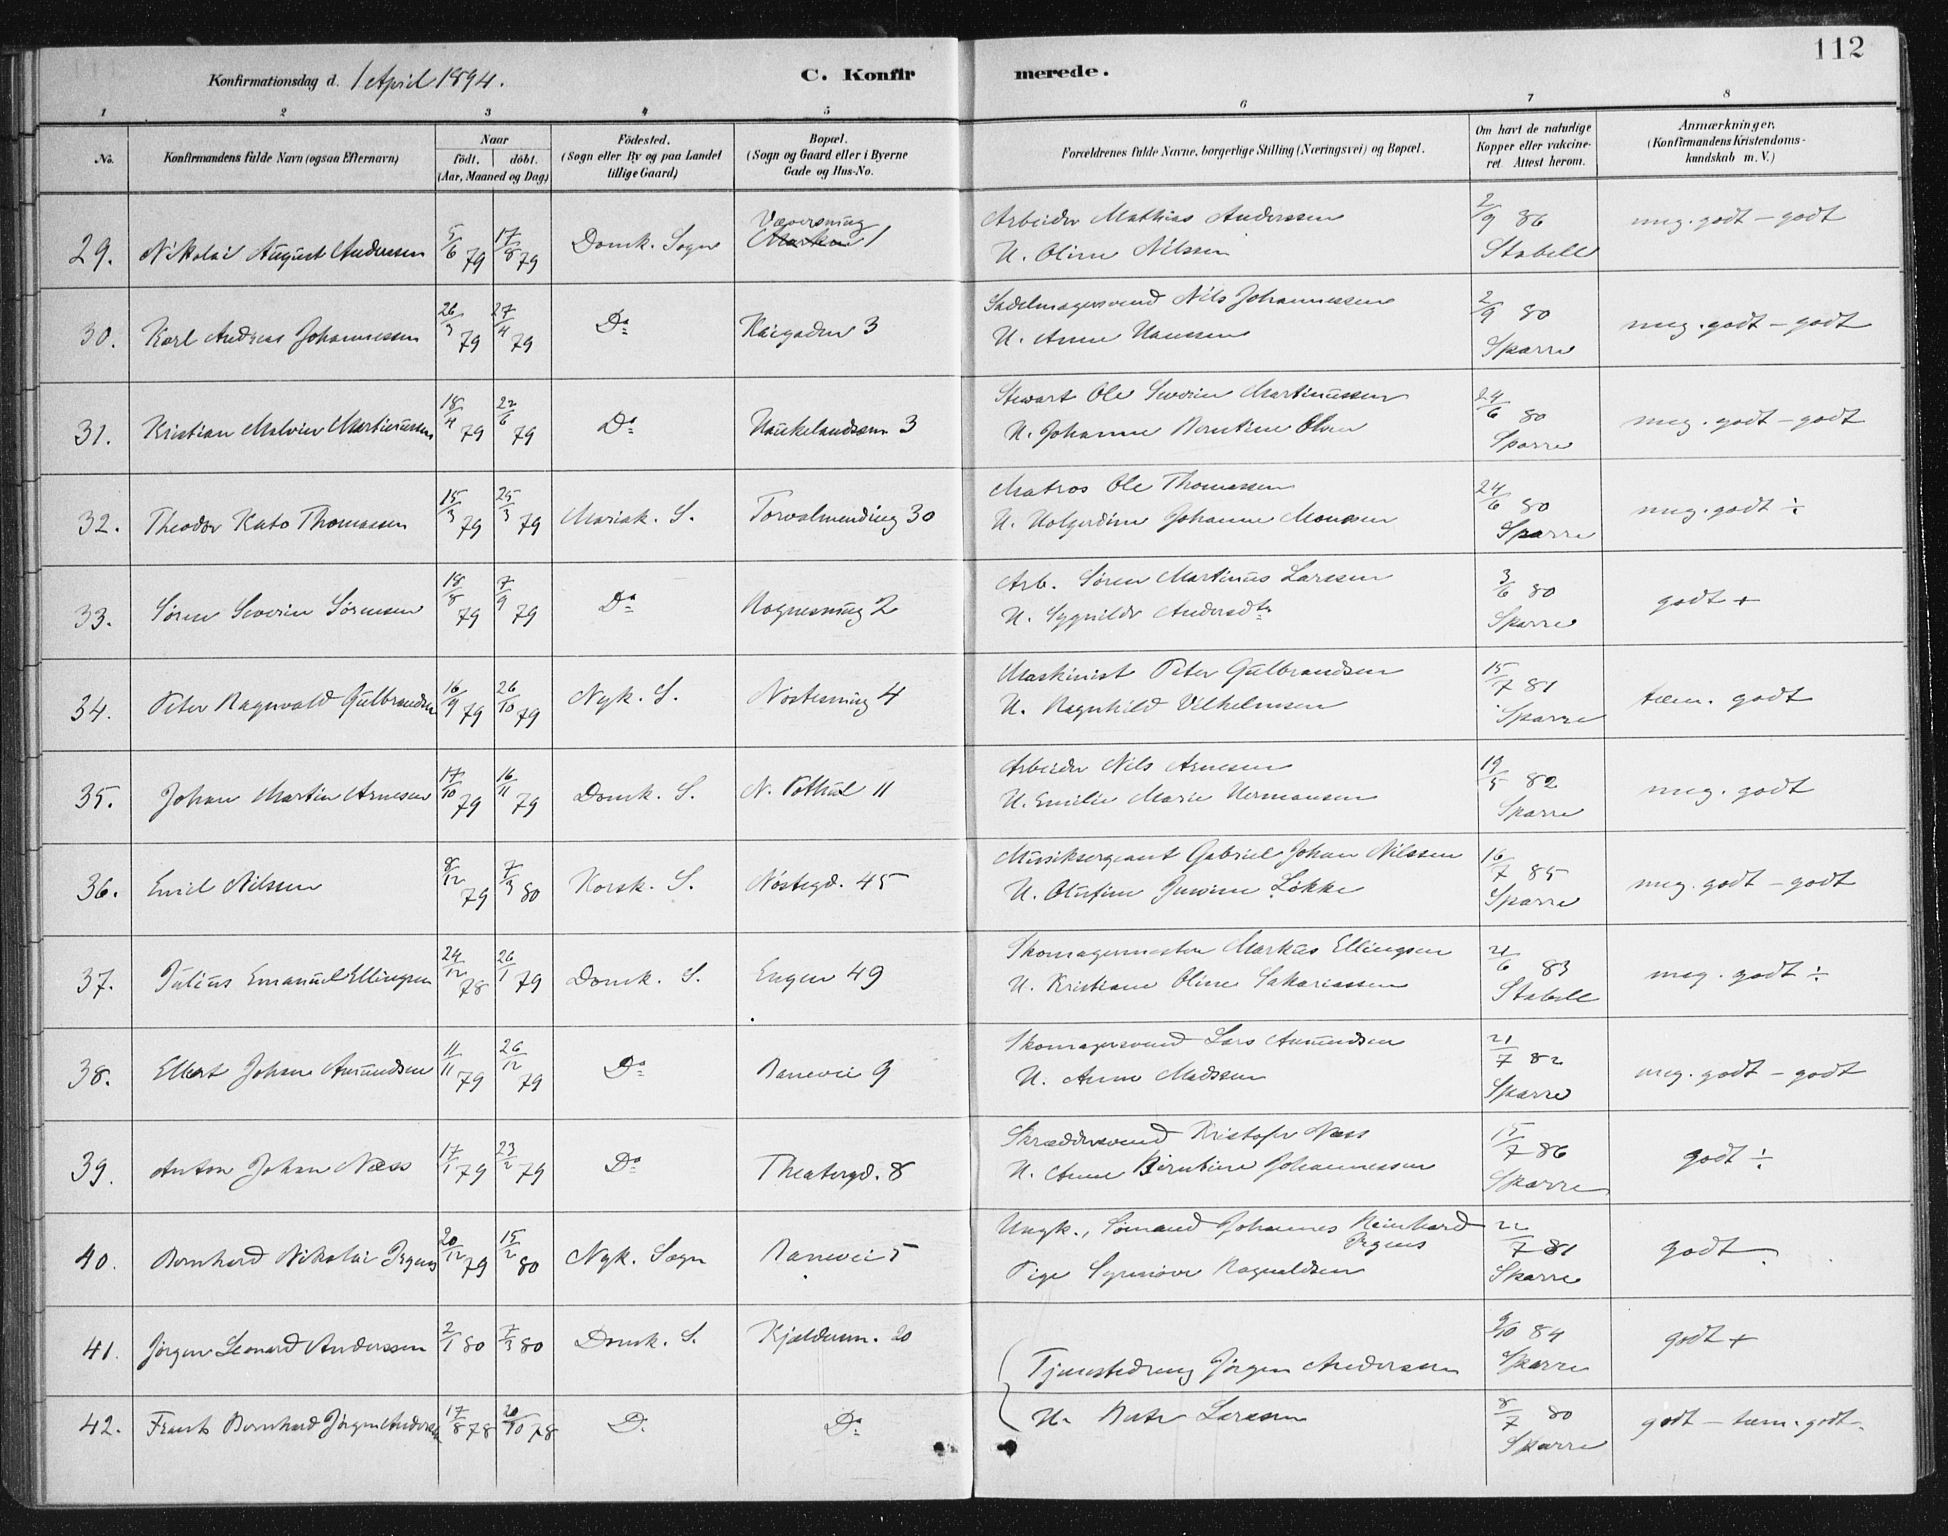 112
Konfirmationsdag d. 1 April 1894. C. Konfirmerede.
1 2 3 4 5 6 7 8
No. Konfirmandens fulde Navn (ogsaa Efternavn) Naar født. døbt. (Aar, Maaned og Dag) Födested. (Sogn eller By og paa Landet tillige Gaard) Bopæl. (Sogn og Gaard eller i Byerne Gade og Hus-No. Forældrenes fulde Navne, borgerlige Stilling (Næringsvei) og Bopæl. Om havt de naturlige Kopper eller vaccineret Attest herom. Anmærkninger. (Konfirmandens Kristendomskundskab m. V.)
29. Nikolai August Anderssen 5/6 79 17/8 79 Domk. Sogn 1 Arbeider Mathias Anderssen 2/9 86 meg. godt - godt
H. Oline Nilssen Stabell
30. Karl Andreas Johannessen 26/3 79 27/4 79 Do Kaigaden 3 Sadelmagersvend Nils Johannessen 2/9 80 meg. godt - godt
H. Anne Hanssen Sparre
31. Kristian Malvin Martinussen 18/4 79 22/6 79 Do Haukelandsvn 3 Stewart Ole Severin Martinussen 24/6 80 meg. godt - godt
H. Johanne Berntine Olsen Sparre
32. Theodor Kato Thomassen 15/3 79 25/3 79 Mariak. S. Torvalmending 30 Matros Ole Thomassen 24/6 80 meg. godt ÷
H. Holgerdine Johanne Monsen Sparre
33. Søren Severin Sørensen 18/8 79 7/9 79 Do Rognesmug 2 Arb. Søren Martinus Larssen 3/6 80 godt +
H. Sygnilde Andersdtr Sparre
34. Peter Ragnvald Gulbrandsen 16/9 79 26/10 79 Nyk. S. Nøstesmug 4 Maskinist Peter Gulbrandsen 15/7 81 tem. godt
H. Ragnhild Vilhelmsen Sparre
35. Johan Martin Arnesen 17/10 79 16/11 79 Domk. S. N. Kothul 11 Arbeider Nils Arnesen 19/5 82 meg. godt
H. Emilie Marie Hermansen Sparre
36. Emil Nilssen 8/12 79 7/3 80 Korsk. S. Nøstegd. 45 Musiksergeant Gabriel Johan Nilssen 16/7 85 meg. godt - godt
H. Olufine Løkke Sparre
37. Julius Emanuel Ellingsen 24/12 78 26/1 79 Domk. S. Engen 49 Skomagermester Markus Ellingsen 21/6 83 meg. godt ÷
H. Kristiane Oline Sakariassen Stabell
38. Elbert Johan Amundsen 11/11 79 26/12 79 Do Banevei 9 Skomagersvend Lars Amundsen 21/7 82 meg. godt - godt
H. Anne Madssen Sparre
39. Anton Johan Næss 17/1 79 23/2 79 Do Theatergd. 8 Skræddersvend Kristofer Næss 15/7 86 godt ÷
H. Anne Berntine Johannessen Sparre
40. Bernhard Nikolai Irgens 20/12 79 15/2 80 Nyk. Sogn Banevei 5 Ungk., Sømand Johannes Reinhard Irgens 22/7 81 godt
Pige Synnøve Ragnaldsen Sparre
41. Jørgen Leonard Anderssen 2/1 80 7/3 80 Domk. S. Kjelderen. 20 Tjenestedreng Jørgen Anderssen 9/10 84 Sparre godt +
42. Frants Bernhard Jørgen Anderssen 17/8 78 20/10 78 D. Do H. Berte Larssen 8/7 80 Sparre godt - tem. godt.